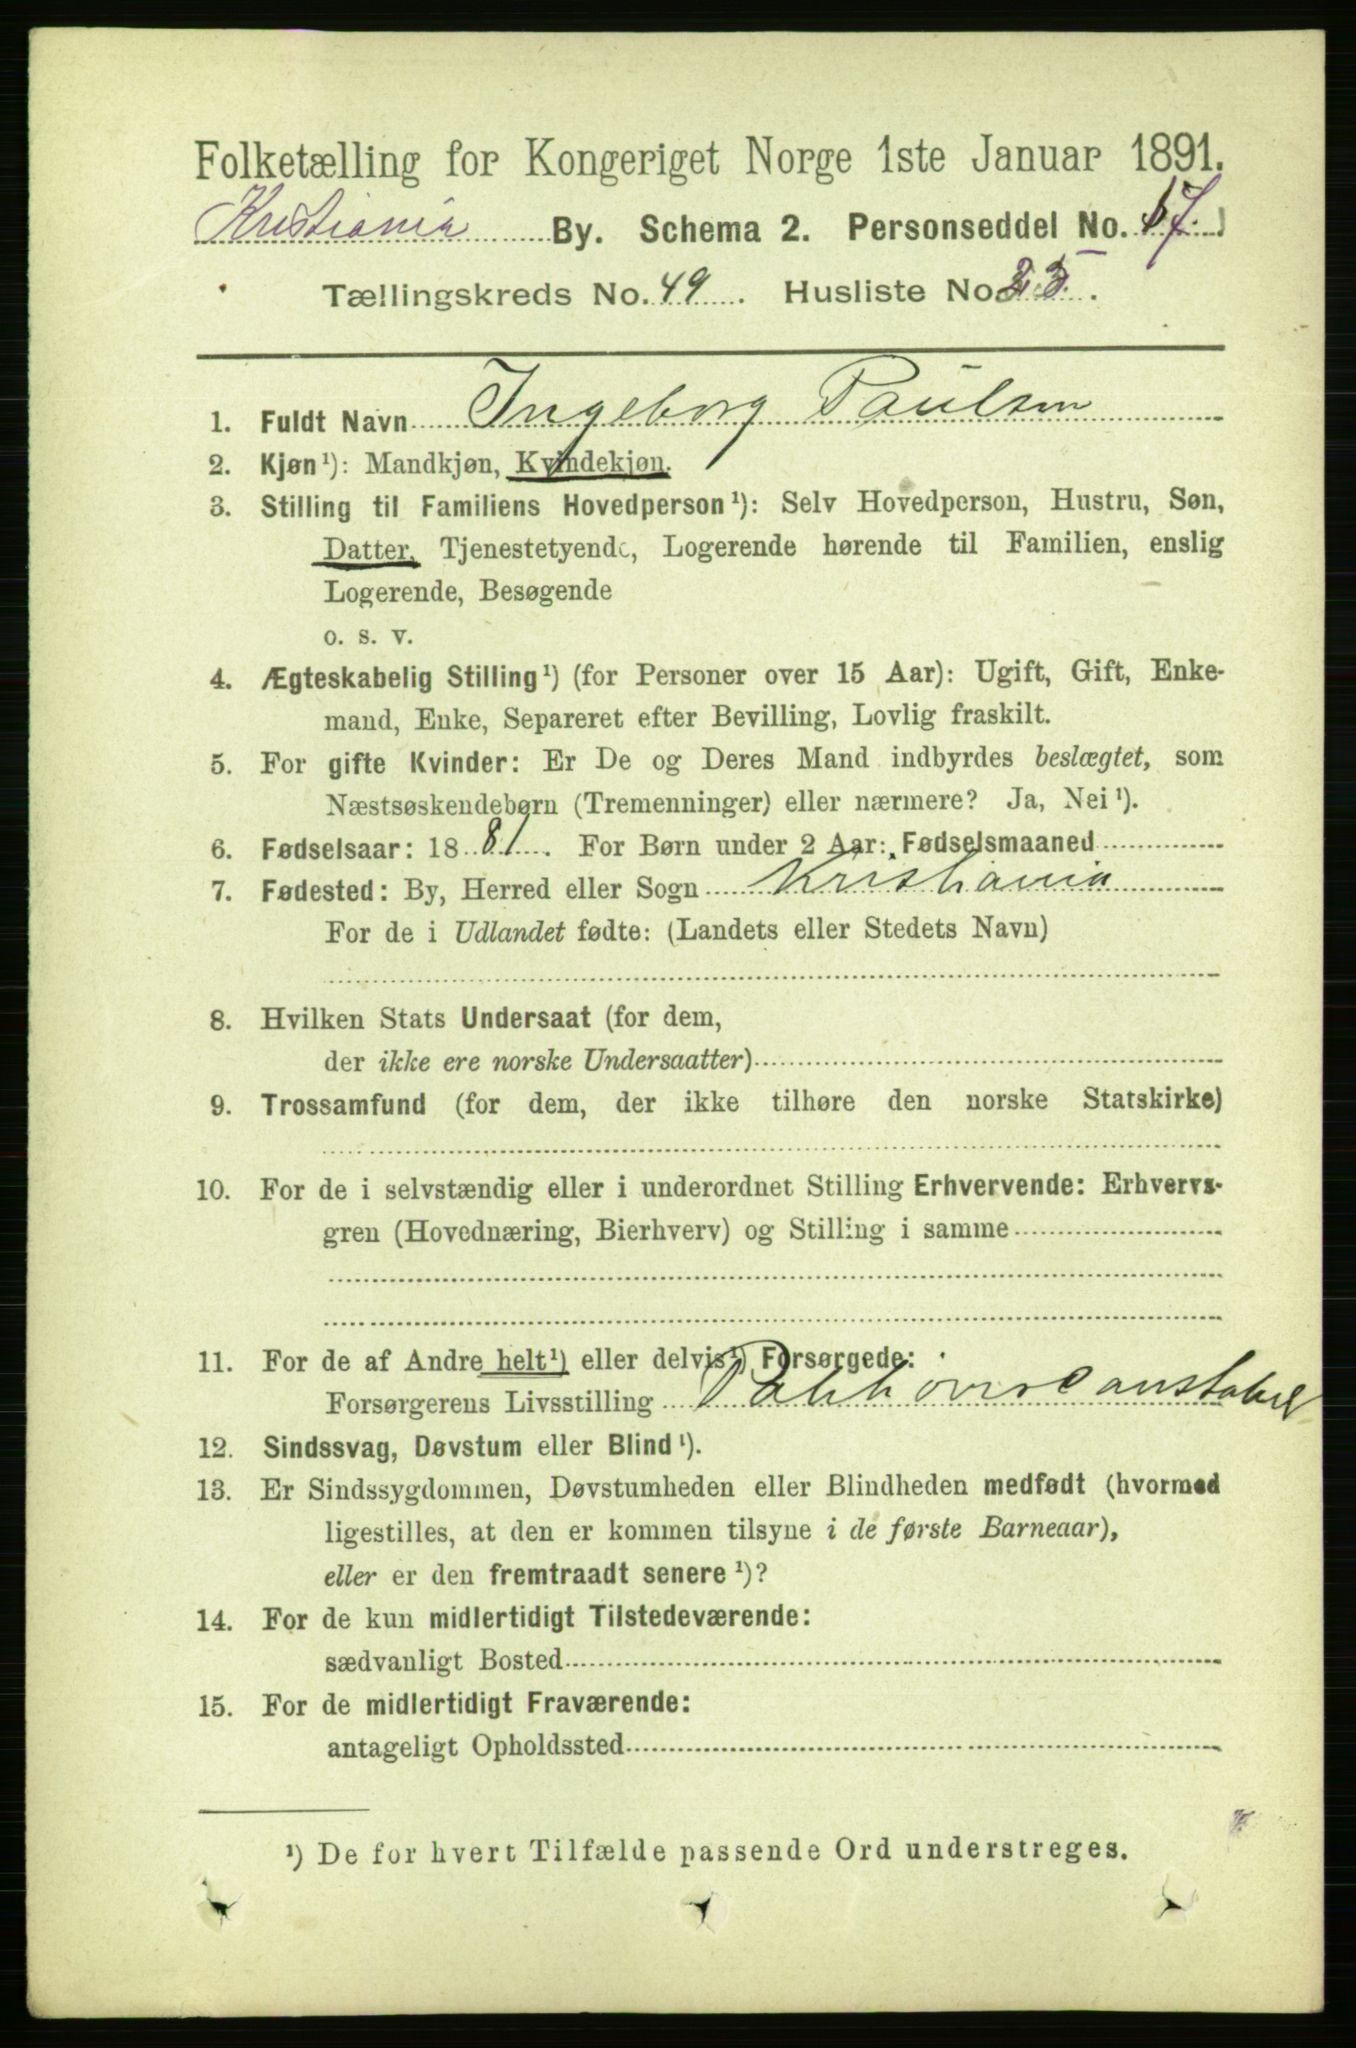 Folketælling for Kongeriget Norge 1ste Januar 1891.
Kristiania By. Schema 2. Personseddel No. 17.
Tællingskreds No. 49. Husliste No.
1. Fuldt Navn Ingeborg Paulsen
2. Kjøn¹): Mandkjøn, Kvindekjøn.
3. Stilling til Familiens Hovedperson¹): Selv Hovedperson, Hustru, Søn,
Datter, Tjenestetyende, Logerende hørende til Familien, enslig
Logerende, Besøgende
o. s. v.
4. Ægteskabelig Stilling¹) (for Personer over 15 Aar): Ugift, Gift, Enke-
mand, Enke, Separeret efter Bevilling, Lovlig fraskilt.
5. For gifte Kvinder: Er De og Deres Mand indbyrdes beslægtet, som
Næstsøskendebørn (Tremenninger) eller nærmere? Ja, Nei¹).
6. Fødselsaar: 1881. For Børn under 2 Aar: Fødselsmaaned
7. Fødested: By, Herred eller Sogn Kristiania
For de i Udlandet fødte: (Landets eller Stedets Navn)
8. Hvilken Stats Undersaat (for dem,
der ikke ere norske Undersaatter)
9. Trossamfund (for dem, der ikke tilhøre den norske Statskirke)
10. For de i selvstændig eller i underordnet Stilling Erhvervende: Erhvervs-
gren (Hovednæring, Bierhverv) og Stilling i samme
11. For de af Andre helt¹) eller delvis¹) Forsørgede:
Forsørgerens Livsstilling Politioverconstabel
12. Sindssvag, Døvstum eller Blind¹).
13. Er Sindssygdommen, Døvstumheden eller Blindheden medfødt (hvormed
ligestilles, at den er kommen tilsyne i de første Barneaar),
eller er den fremtraadt senere¹)?
14. For de kun midlertidigt Tilstedeværende:
sædvanligt Bosted
15. For de midlertidigt Fraværende:
antageligt Opholdssted
¹) De for hvert Tilfælde passende Ord understreges.